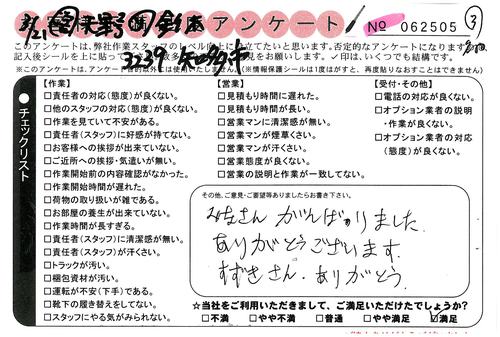 3/21
アンケート
No 062505
③
このアンケートは、弊社作業スタッフのレベル向上に
立てたいと思います。否定的なアンケートになります
記入後シールを上に貼って
をお願いします。✓印は、いくつでも結構です。
3239
※このアンケートは、
使用いたしません。(※情報保護シールは1度はがすと、再度貼りなおすことはできません)
チェックリスト
【作業】
□責任者の対応(態度)が良くない。
□他のスタッフの対応(態度)が良くない。
□作業を見ていて不安がある。
□責任者(スタッフ)に好感が持てない。
□お客様への挨拶が出来ていない。
□ご近所への挨拶・気遣いが無い。
□作業開始前の内容確認がなかった。
□作業開始時間が遅れた。
□荷物の取り扱いが雑である。
□お部屋の養生が出来ていない。
□作業時間が長すぎる。
□責任者(スタッフ)に清潔感が無い。
□責任者(スタッフ)が汗くさい。
□トラックが汚い。
□梱包資材が汚い。
□運転が不安(下手)である。
□靴下の履き替えをしてない。
□スタッフにやる気がみられない。
【営業】
□見積もり時間に遅れた。
□見積もり時間が長い。
□営業マンに清潔感が無い。
□営業マンが煙草くさい。
□営業マンが汗くさい。
□営業態度が良くない。
□営業の説明と作業が一致してない。
【受付・その他】
□電話の対応が良くない。
□オプション業者の説明
・作業が良くない。
□オプション業者の対応
(態度)が良くない。
その他、ご意見・ご要望等ありましたらお書き下さい。
みなさん がんばりました
ありがとうございます
すずきさん. ありがとう
☆当社をご利用いただきまして、ご満足いただけたでしょうか?
□不満 □やや不満 □普通 □やや満足 ☑満足